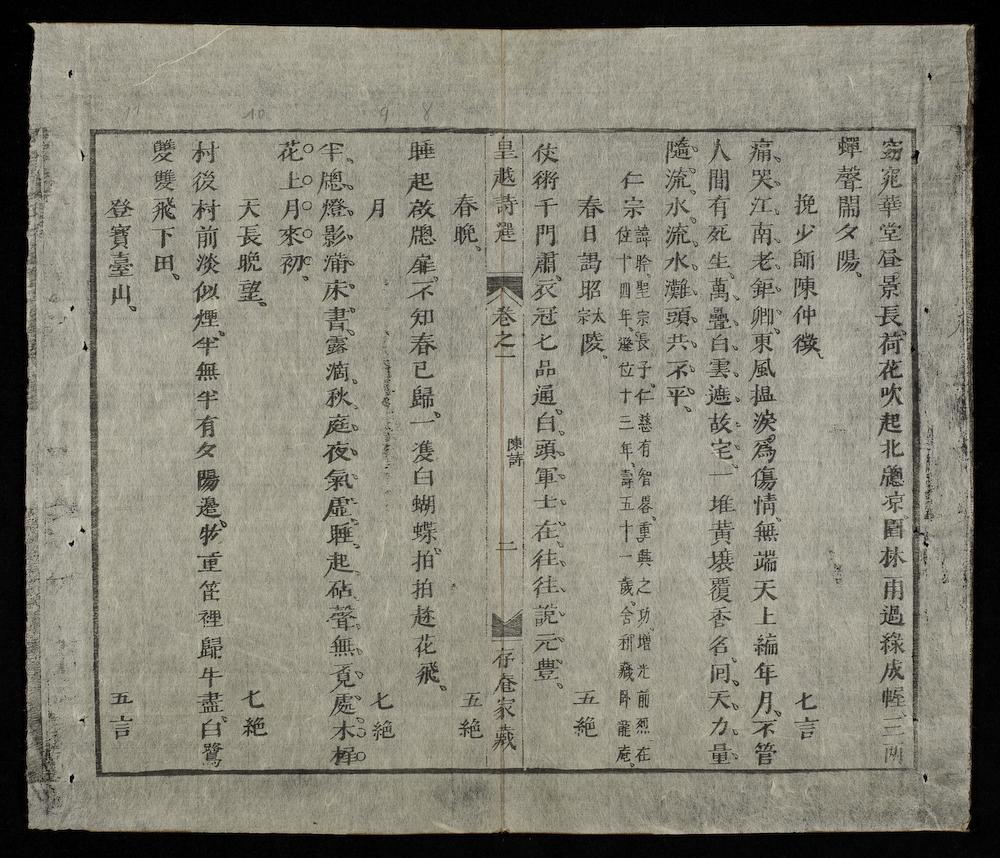 窈窕華堂昼景長荷花吹起北牕凉園林雨過綠成幄三兩
蟬聲鬧夕陽
挽少師陳仲徵 七言
痛哭江南老鉅卿東風揾淚爲傷情無端天上編年月不管
人間有死生萬疊白雲遮故宅一堆黃壤覆香名囘天力量
隨流水流水灘頭共不平
仁宗
諱昑聖宗長子仁慈有智畧重興之功增光前烈在
位十四年遜位十三年壽五十一歲舍利藏卧龍庵
春日謁昭太宗陵 五絕
仗術千門肅衣冠七品通白頭軍士在往往說元豊
皇越詩選 卷之一 陳詩 二 存庵家藏
春晚 五絕
睡起啟牕扉不知春已歸一䨇白蝴蝶拍拍趂花飛
月 七絕
半牕燈影滿床書露滴秋庭夜氣虛睡起砧聲無覓處木樨
花上月來初
天長晩望 七絕
村後村前淡似煙半無半有夕陽邊牧童笛裡歸牛盡白鷺
雙雙飛下田
登寶臺山 五言